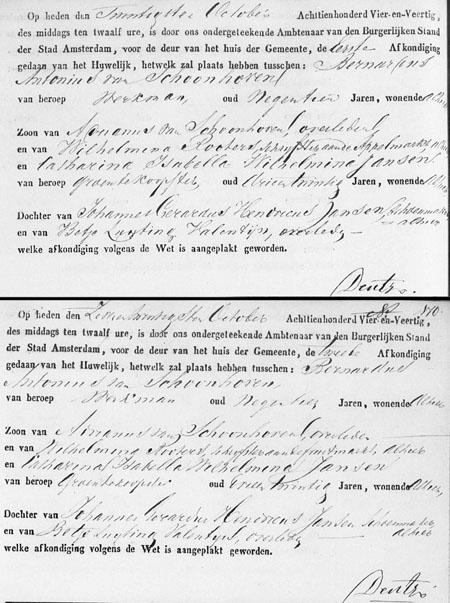 Op heden den Twintigsten October Achttienhonderd Vier-en-Veertig,
des middags ten twaalf ure, is door ons ondergeteekende Ambtenaar van den Burgerlijken Stand
der Stad Amsterdam, voor de deur van het huis der Gemeente, de eerste Afkondiging
gedaan van het Huwelijk, hetwelk zal plaats hebben tusschen: Bernardus
Antonius van Schoonhoven
van beroep Werkman, oud Negentien Jaren, wonende alhier
Zoon van Adrianus van Schoonhoven, overleden
en van Wilhelmina
en Catharina Isabella Wilhelmina Jansen
van beroep Groentekoopster oud Drieentwintig Jaren, wonende alhier
Dochter van Johannes Gerardus Hendricus Jansen, Schoenmaker alhier
en van Betje Luyting Valentijn, overleden
welke afkondiging volgens de Wet is aangeplakt geworden.
Deutz
870
Op heden den Zevenentwintigsten October Achttienhonderd Vier-en-Veertig,
des middags ten twaalf ure, is door ons ondergeteekende Ambtenaar van den Burgerlijken Stand
der Stad Amsterdam, voor de deur van het huis der Gemeente, de tweede Afkondiging
gedaan van het Huwelijk, hetwelk zal plaats hebben tusschen: Bernardus
Antonius van Schoonhoven
van beroep Werkman oud Negentien Jaren, wonende alhier
Zoon van Adrianus van Schoonhoven, overleden
en van Wilhelmina alhier
en Catharina Isabella Wilhelmina Jansen
van beroep Groentekoopster oud Drieentwintig Jaren, wonende alhier
Dochter van Johannes Gerardus Hendricus Jansen Schoenmaker alhier
en van Betje Luyting Valentijn, overleden
welke afkondiging volgens de Wet is aangeplakt geworden.
Deutz